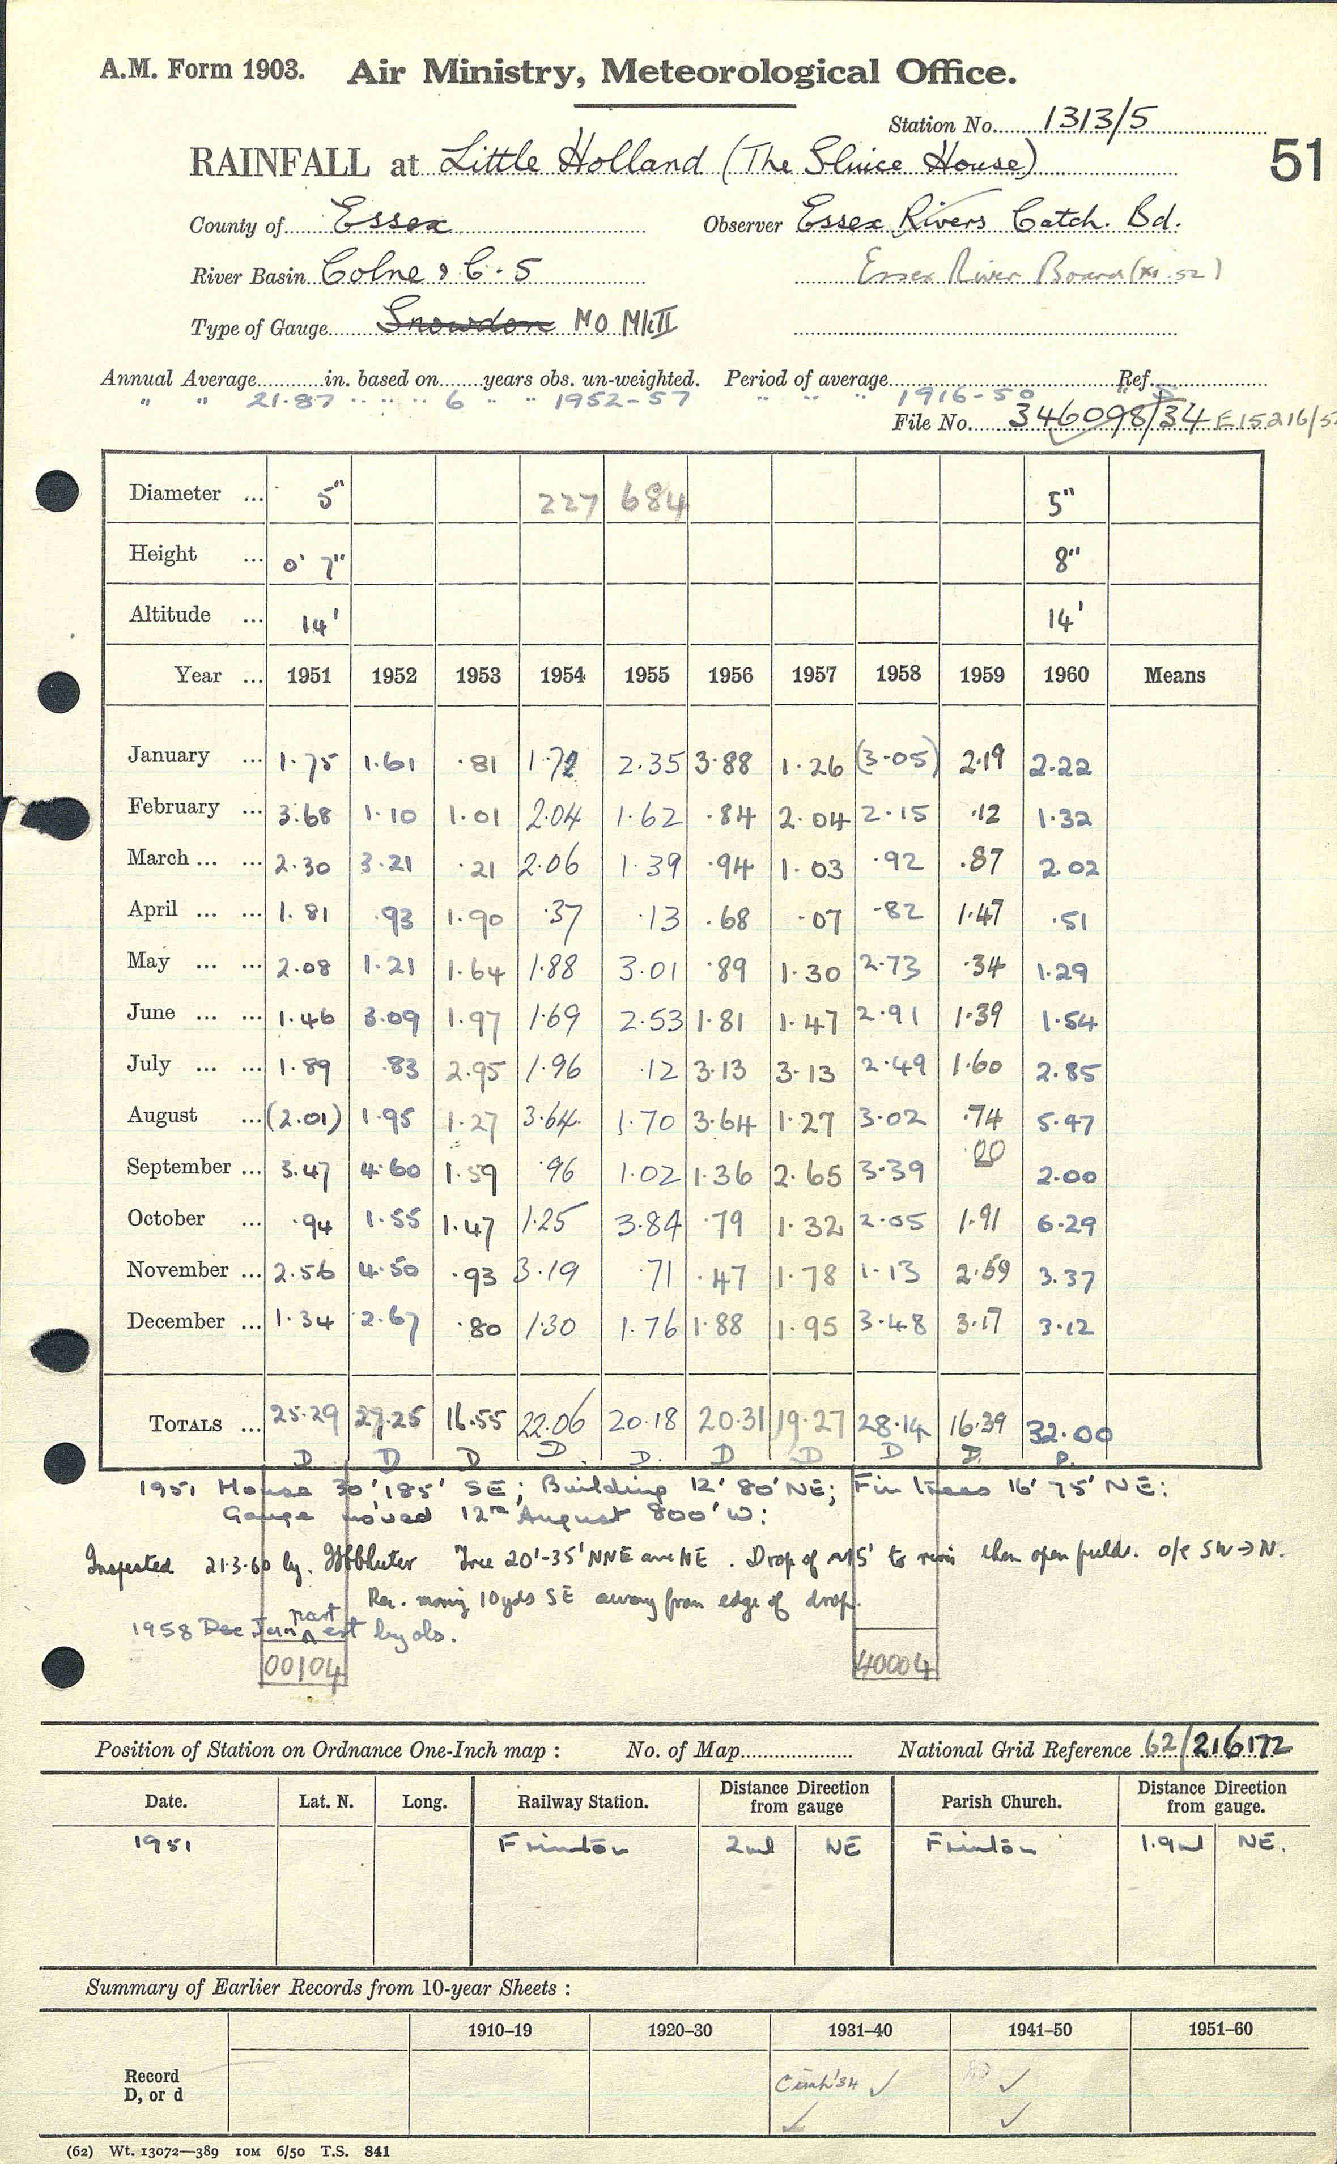 A.M. Form 1903. Air Ministry, Meteorological Office.
Station No. 1313/5
51
RAINFALL at Little Holland (The Sluice House)
County of Essex Observer Essex Rivers Catch. Bd.
River Basin Colne & C-5 Essex River Board (xi.52)
Type of Gauge Snowdon MO MkII
Annual Average in. based on years obs. un-weighted. Period of average Ref.
" " 21.87 " " " 6 " " 1952-57 " " " 1916-50 " 5
File No. 346098/34 E15216/5
Diameter ... 5" 227 684 5"
Height ... 0' 7" 8"
Altitude ... 14' 14'
Year ... 1951 1952 1953 1954 1955 1956 1957 1958 1959 1960 Means
January ... 1.75 1.61 .81 1.72 2.35 3.88 1.26 (3.05) 2.19 2.22
February ... 3.68 1.10 1.01 2.04 1.62 .84 2.04 2.15 .12 1.32
March ... ... 2.30 3.21 .21 2.06 1.39 .94 1.03 .92 .87 2.02
April ... ... 1.81 .93 1.90 .37 .13 .68 .07 .82 1.47 .51
May ... ... 2.08 1.21 1.64 1.88 3.01 .89 1.30 2.73 .34 1.29
June ... ... 1.46 3.09 1.97 1.69 2.53 1.81 1.47 2.91 1.39 1.54
July ... ... 1.89 .83 2.95 1.96 .12 3.13 3.13 2.49 1.60 2.85
August ... (2.01) 1.95 1.27 3.64 1.70 3.64 1.27 3.02 .74 5.47
September ... 3.47 4.60 1.59 .96 1.02 1.36 2.65 3.39 .00 2.00
October ... .94 1.55 1.47 1.25 3.84 .79 1.32 2.05 1.91 6.29
November ... 2.56 4.50 .93 3.19 .71 .47 1.78 1.13 2.59 3.37
December ... 1.34 2.67 .80 1.30 1.76 1.88 1.95 3.48 3.17 3.12
TOTALS ... 25.29 27.25 16.55 22.06 20.18 20.31 19.27 28.14 16.39 32.00
D D D D D D D D D D
1951 House 30' 185' SE; Building 12' 80' NE; Fir trees 16' 75' NE;
Gauge moved 12th August 800' W:
Inspected 21.3.60 by. Tree 20'-35' NNE and NE. Drop of 15' to river then open fields. o/e SW→N.
Rec. moving 10yds SE away from edge of drop.
1958 Dec Jan part est by obs.
00104 40004
Position of Station on Ordnance One-Inch map : No. of Map National Grid Reference 62/216172
Date. Lat. N. Long. Railway Station. Distance Direction from gauge Parish Church. Distance Direction from gauge.
1951 Frinton 2ml NE Frinton 1.9ml NE.
Summary of Earlier Records from 10-year Sheets :
1910–19 1920–30 1931–40 1941–50 1951–60
Record D, or d ✓ ✓
✓ ✓
(62) Wt. 13072—389 10M 6/50 T.S. 841